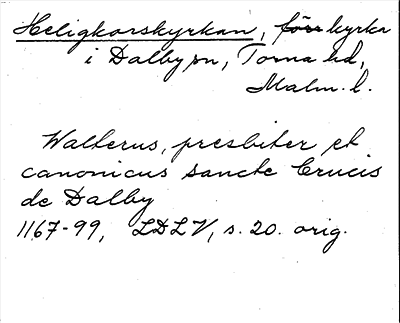 Heligkorskyrkan, kyrka
i Dalby sn, Torna hd,
Malm. l.
Walterus, presbiter et
canonicus sancte Crucis
de Dalby
1167-99, LDLV, s. 20. orig.